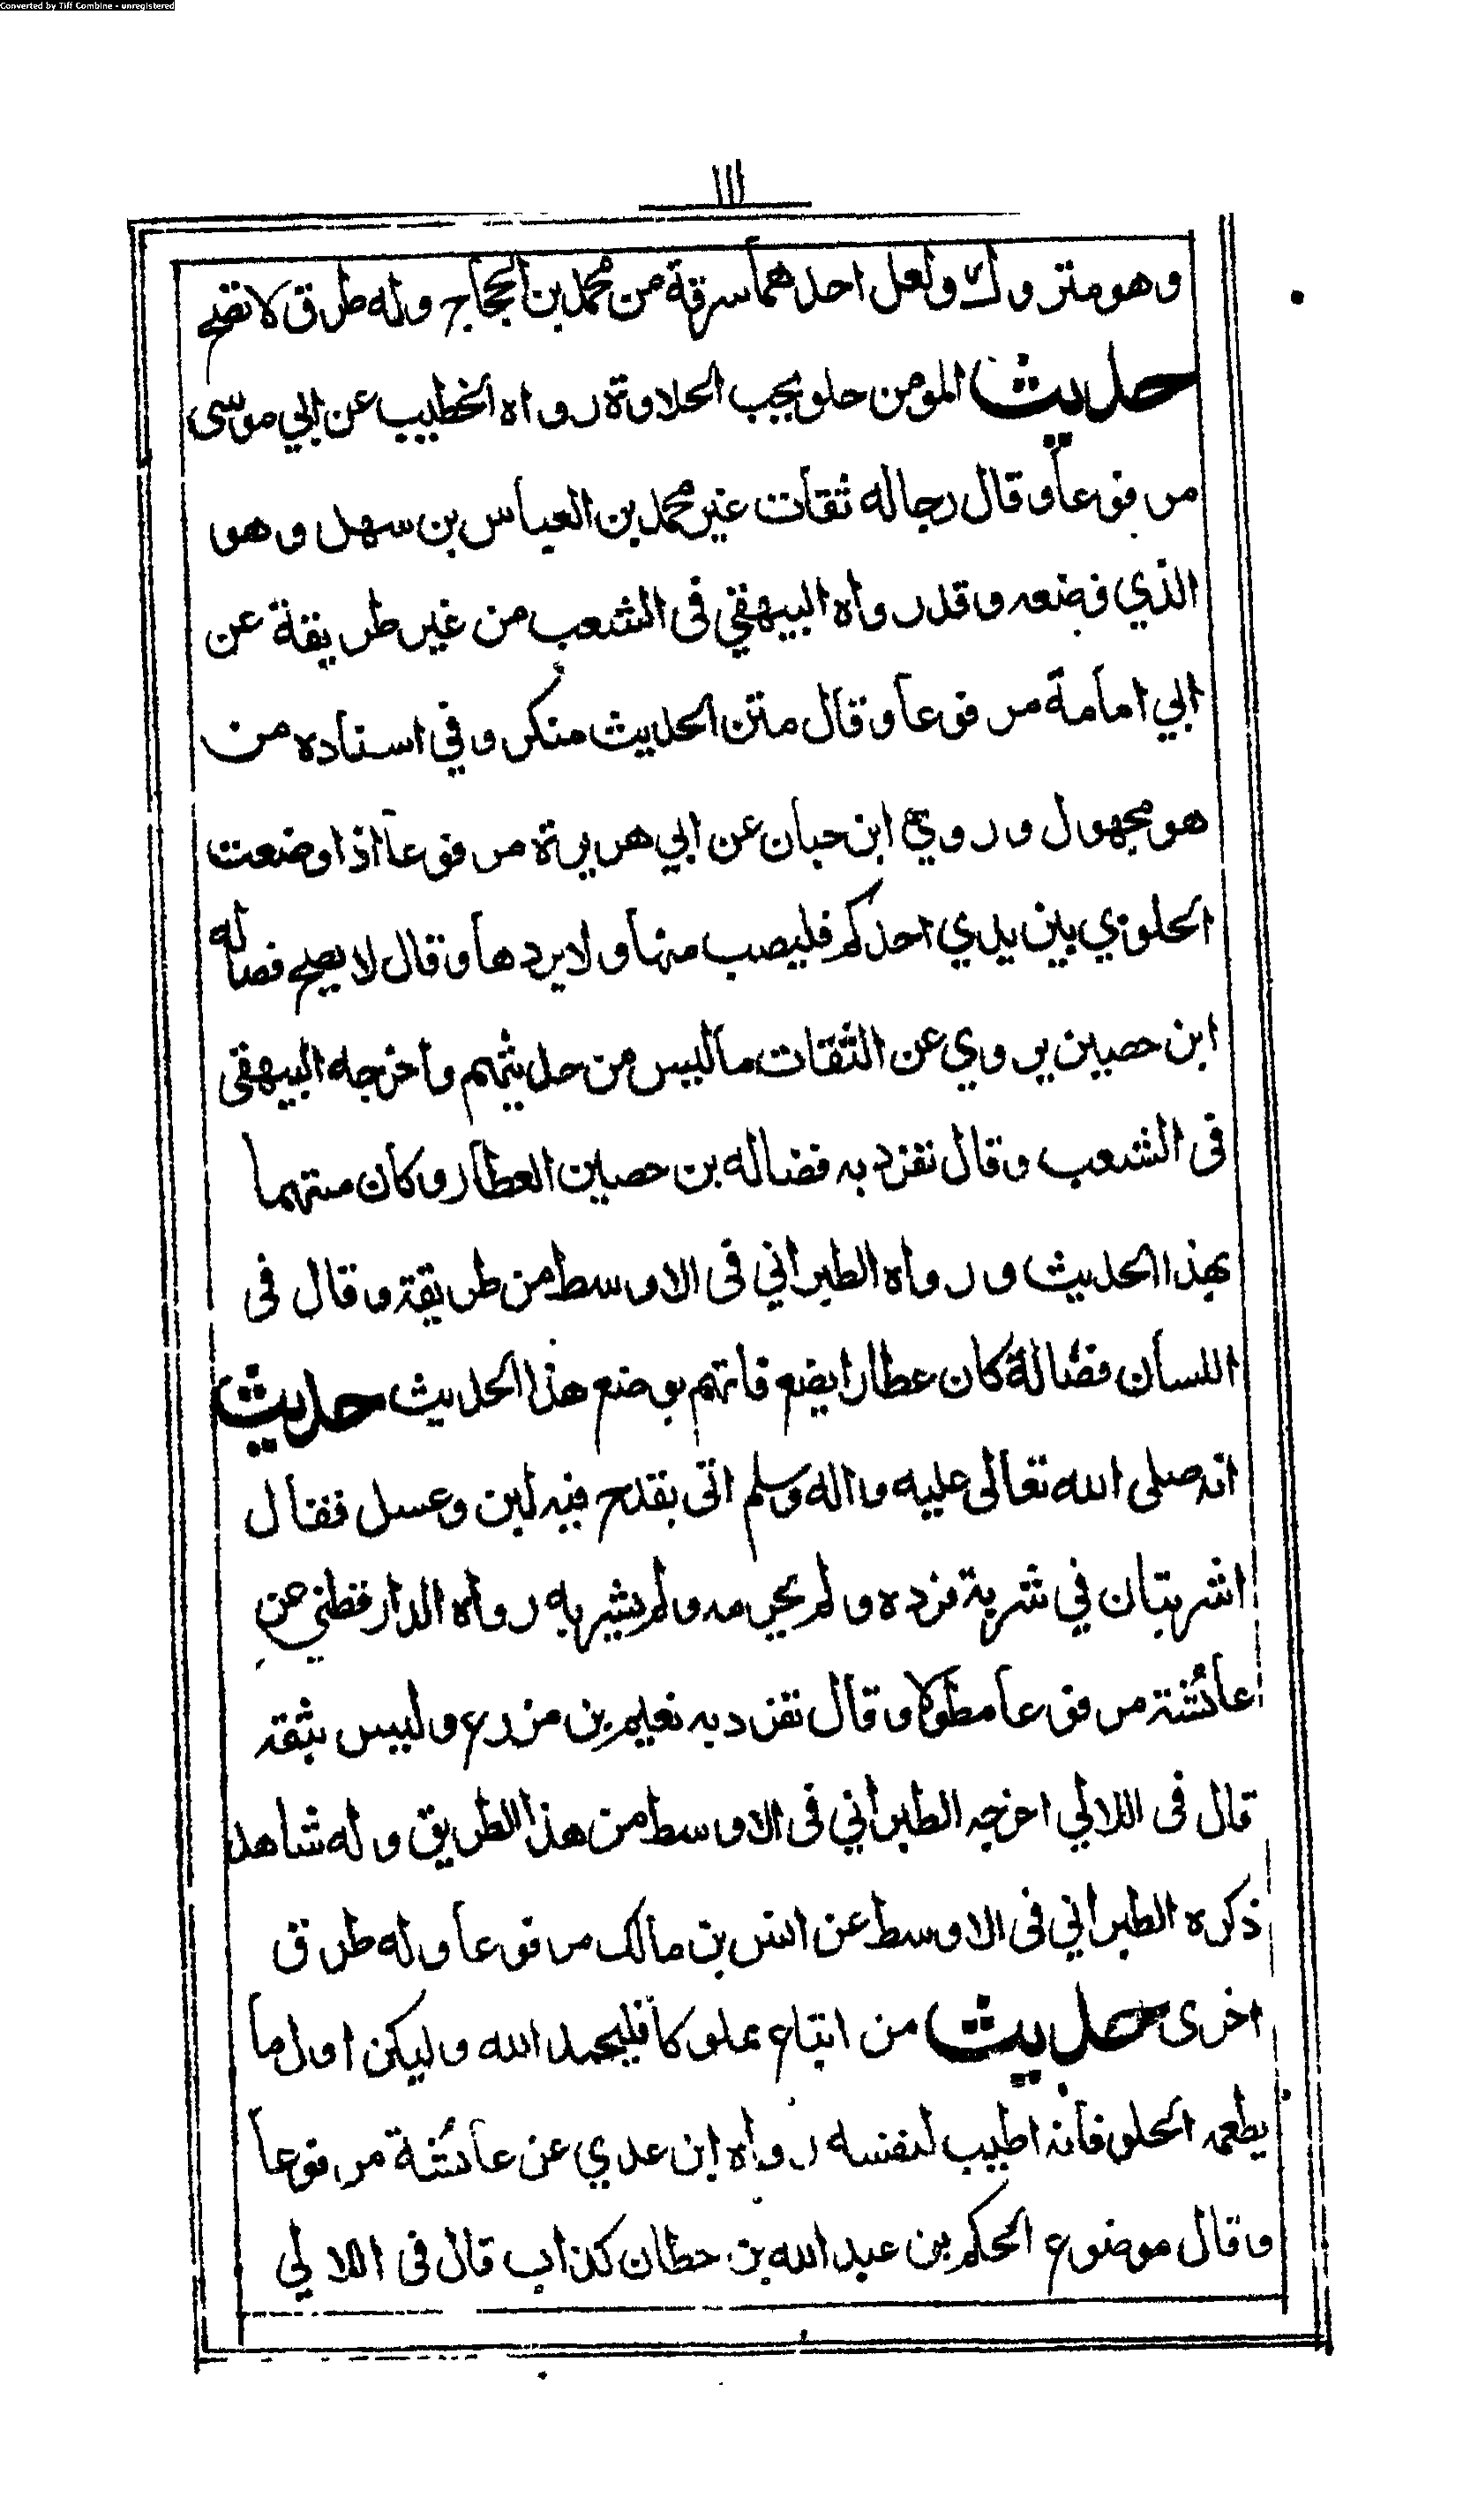 Converted by Tiff Combine - unregistered
١١١
وهو متروك ولعل احدهما سرقة من محمد بن الحجاج وله طرق لا تصح
حديث المومن حلو يحب الحلاوة رواه الخطيب عن ابي موسى
مرفوعا وقال رجاله ثقات غير محمد بن العباس بن سهل وهو
الذي وضعه وقد رواه البيهقي فى الشعب من غير طريقة عن
ابي امامة مرفوعا وقال متن الحديث منكر وفي اسناده من
هو مجهول وروي ابن حبان عن ابي هريرة مرفوعا اذا وضعت
الحلوي بين يدي احدكم فليصب منها ولا يردها وقال لا يصح فضاله
ابن حصين يروي عن الثقات ما ليس من حديثهم واخرجه البيهقى
فى الشعب وقال تفرد به فضاله بن حصين العطار وكان متهما
بهذا الحديث ورواه الطبراني فى الاوسط من طريقة وقال فى
اللسان فضالة كان عطارا يضع فاتهم بوضع هذا الحديث حديث
انه صلى الله تعالى عليه واله وسلم اتى بقدح فيه لبن وعسل فقال
اشربتان في شربة فرده ولم يحرمه ولم يشربه رواه الدارقطني عن
عائشة مرفوعا مطولا وقال تفرد به نعيم بن مزرع وليس بثقة
قال فى اللالي اخرجه الطبراني فى الاوسط من هذا الطريق وله شاهد
ذكره الطبراني فى الاوسط عن انس بن مالك مرفوعا وله طرق
اخرى حديث من ابتاع مملوكا فليحمد الله وليكن اول ما
يطعمه الحلو فانه اطيب لنفسه رواه ابن عدي عن عائشة مرفوعا
وقال موضوع الحكم بن عبد الله بن حطان كذاب قال فى اللالي